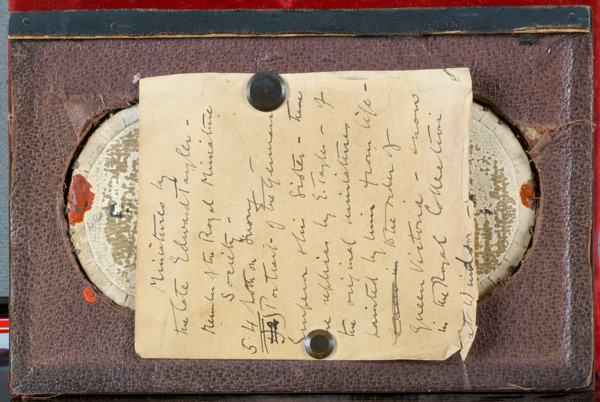 Miniatures by
the late Edward Tayler -
Member of the Royal Miniature
Society -
54 both on Ivory -
Portrait - of the German
Emperor & his Sister - these
are replicas by E. Tayler - of
the original miniatures
painted by him from life -
to the order of
Queen Victoria - & now
in the Royal Collection
at Windsor -